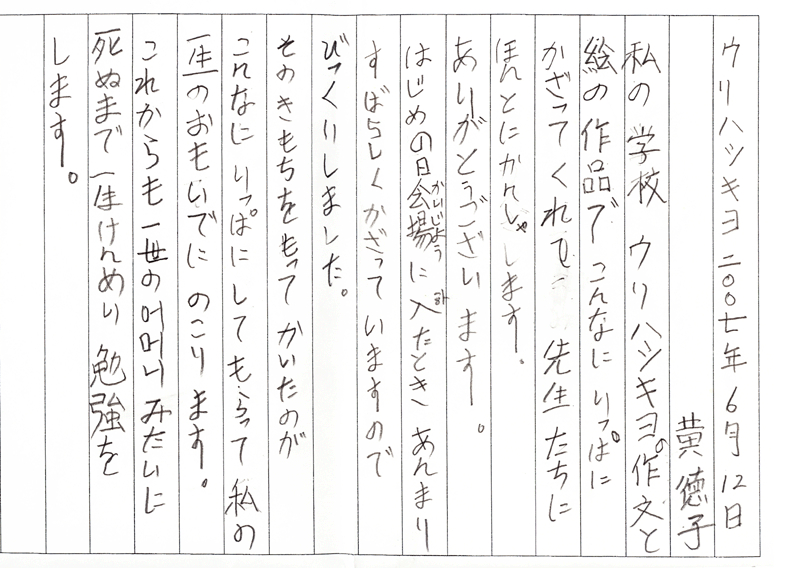 ウリハツキヨ 二〇〇七年 6月 12日
黄徳子
私の 学校 ウリハツキヨの作文と
絵の作品で こんなに りっぱに
かざってくれも 先生 たちに
ほんとにかんしゃします。
ありがとうござい ます。
はじめの日会場に 入たとき あんまり
かいじょう
すばらしくかざって いますので
びっくりしました。
そのきもちをもって かいたのが
こんなに りっぱにしてもらって 私の
一生のおもいでに のこり ます。
これからも 一世の어머니 みたいに
死ぬまで 一生けんめい 勉強を
します。